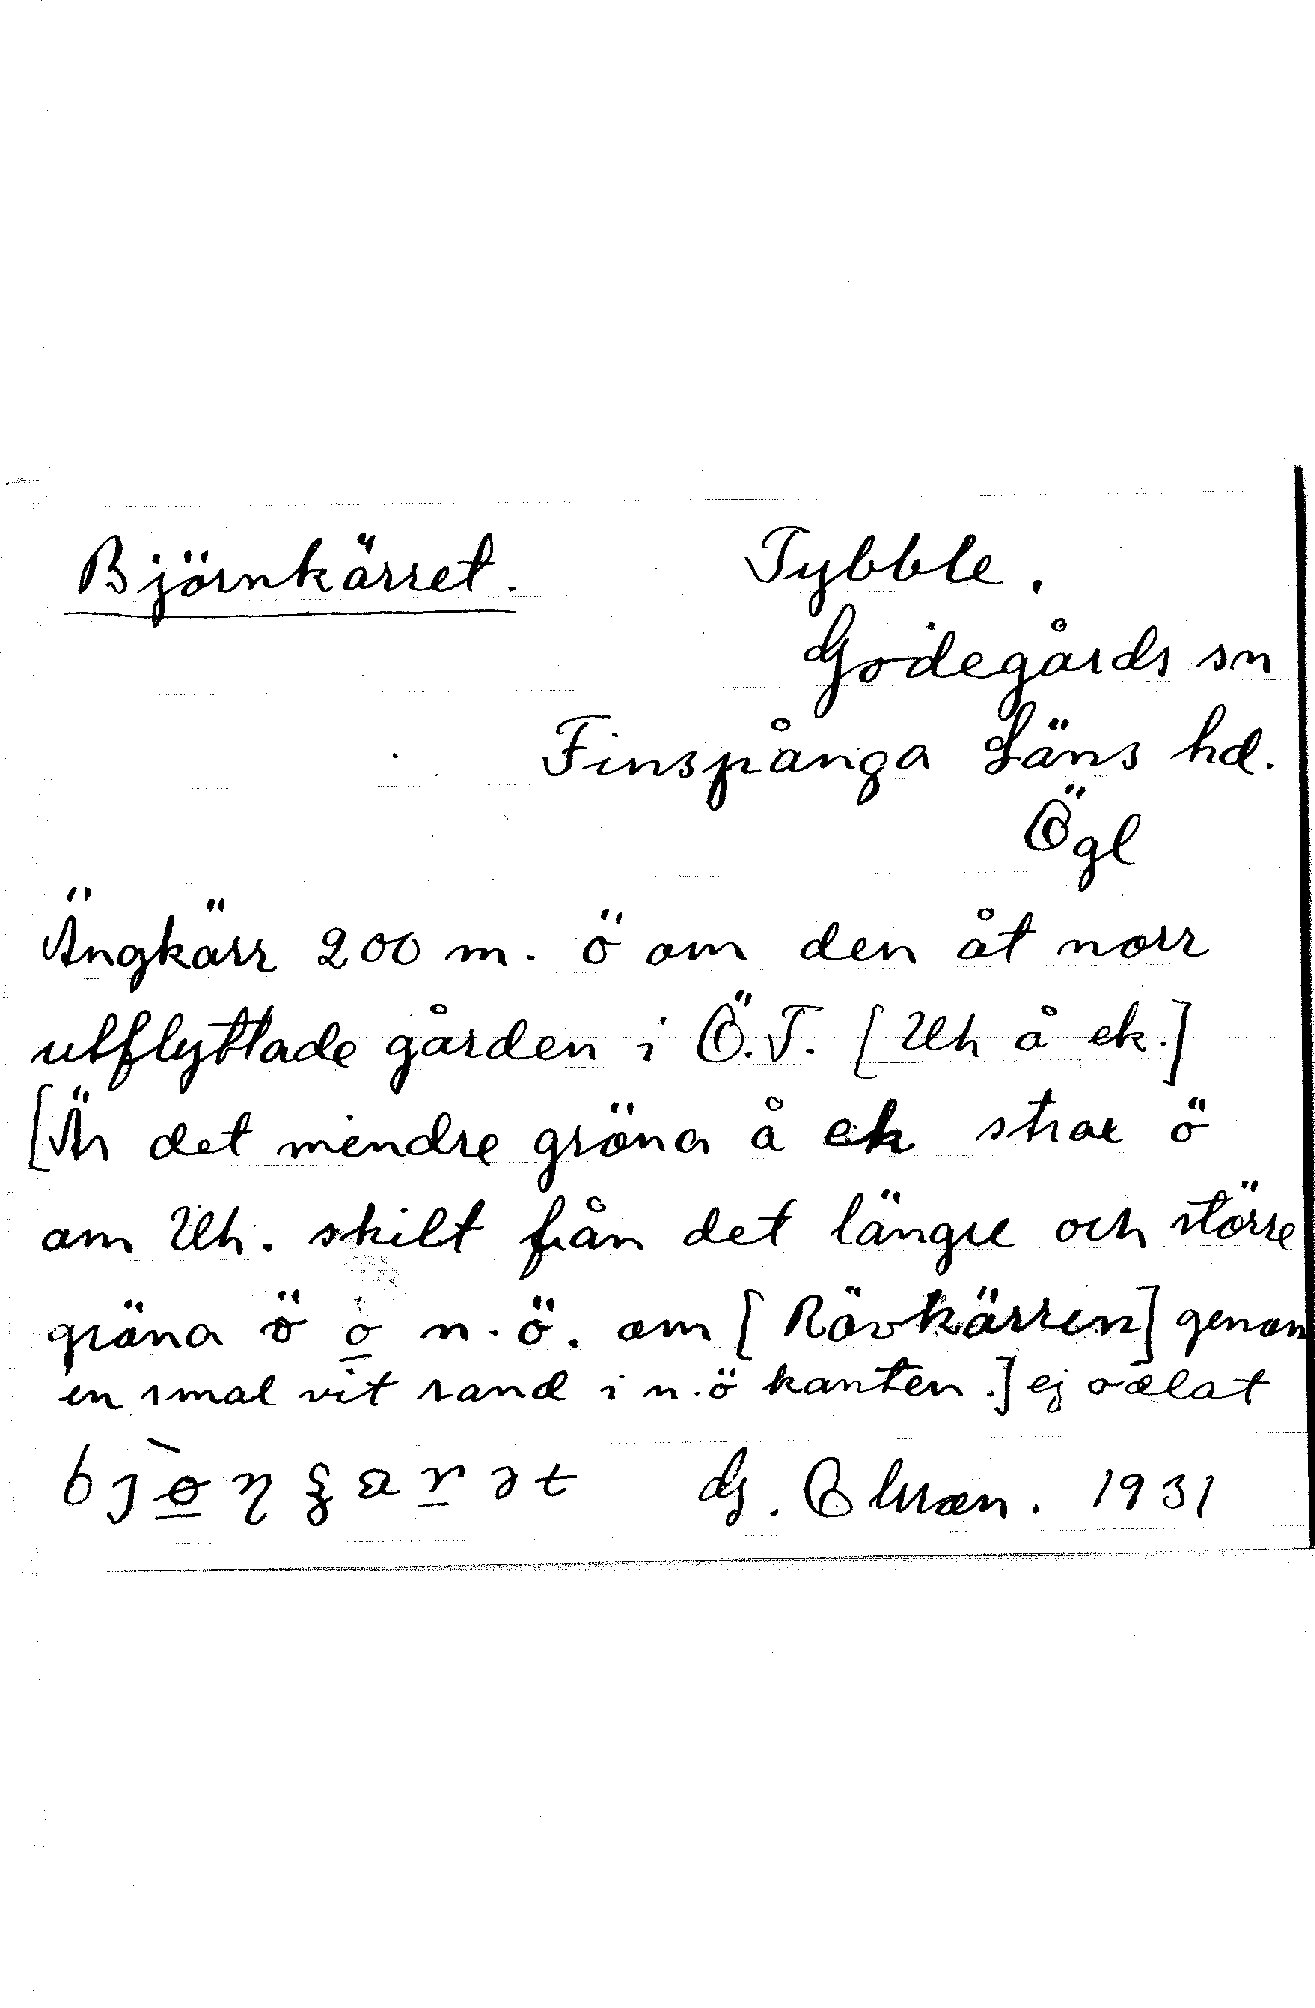 Björnkärret. Tybble.
Godegårds sn
Finspånga Läns hd.
Ögl
Ängkärr 200 m. ö om den åt norr
utflyttade gården i Ö.T. [Uh å ek.]
[Är det mindre gröna å ek strax ö
om Uh. skilt från det längre och större
gröna ö o n.ö. om [Rävkärren] genom
en smal vit rand i n.ö kanten.] ej odlat
G. 1931